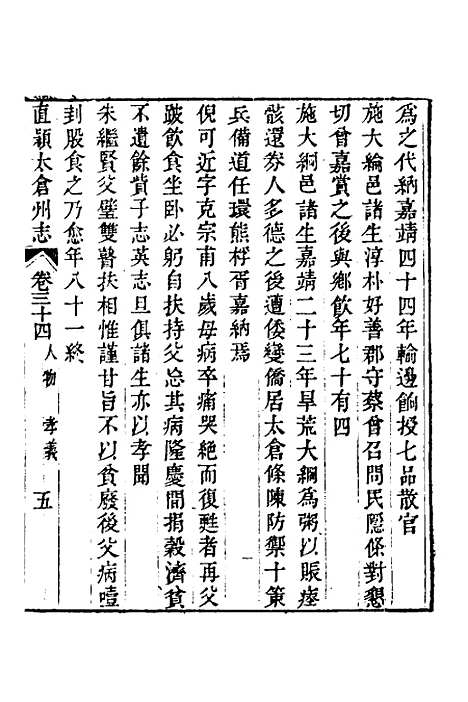 爲之代納嘉靖四十四年輸邊餉授七品散官
施大綸邑諸生淳朴好善郡守蔡曾召問民隱條對懇
切曾嘉賞之後與鄉飲年七十有四
施大綱邑諸生嘉靖二十三年旱荒大綱爲粥以賑瘞
骸還券人多德之後遭倭變僑居太倉條陳防禦十策
兵備道任環熊桴胥嘉納焉
倪可近字克宗甫八歲母病卒痛哭絶而復甦者再父
跛飲食坐卧必躬自扶持父忘其病隆慶間捐穀濟貧
不遺餘貲子志英志旦俱諸生亦以孝聞
朱繼賢父璧雙瞽扶相惟謹甘旨不以貧廢後父病噎
刲股食之乃愈年八十一終
直頴太倉州志 卷三十四 人物 孝義 五